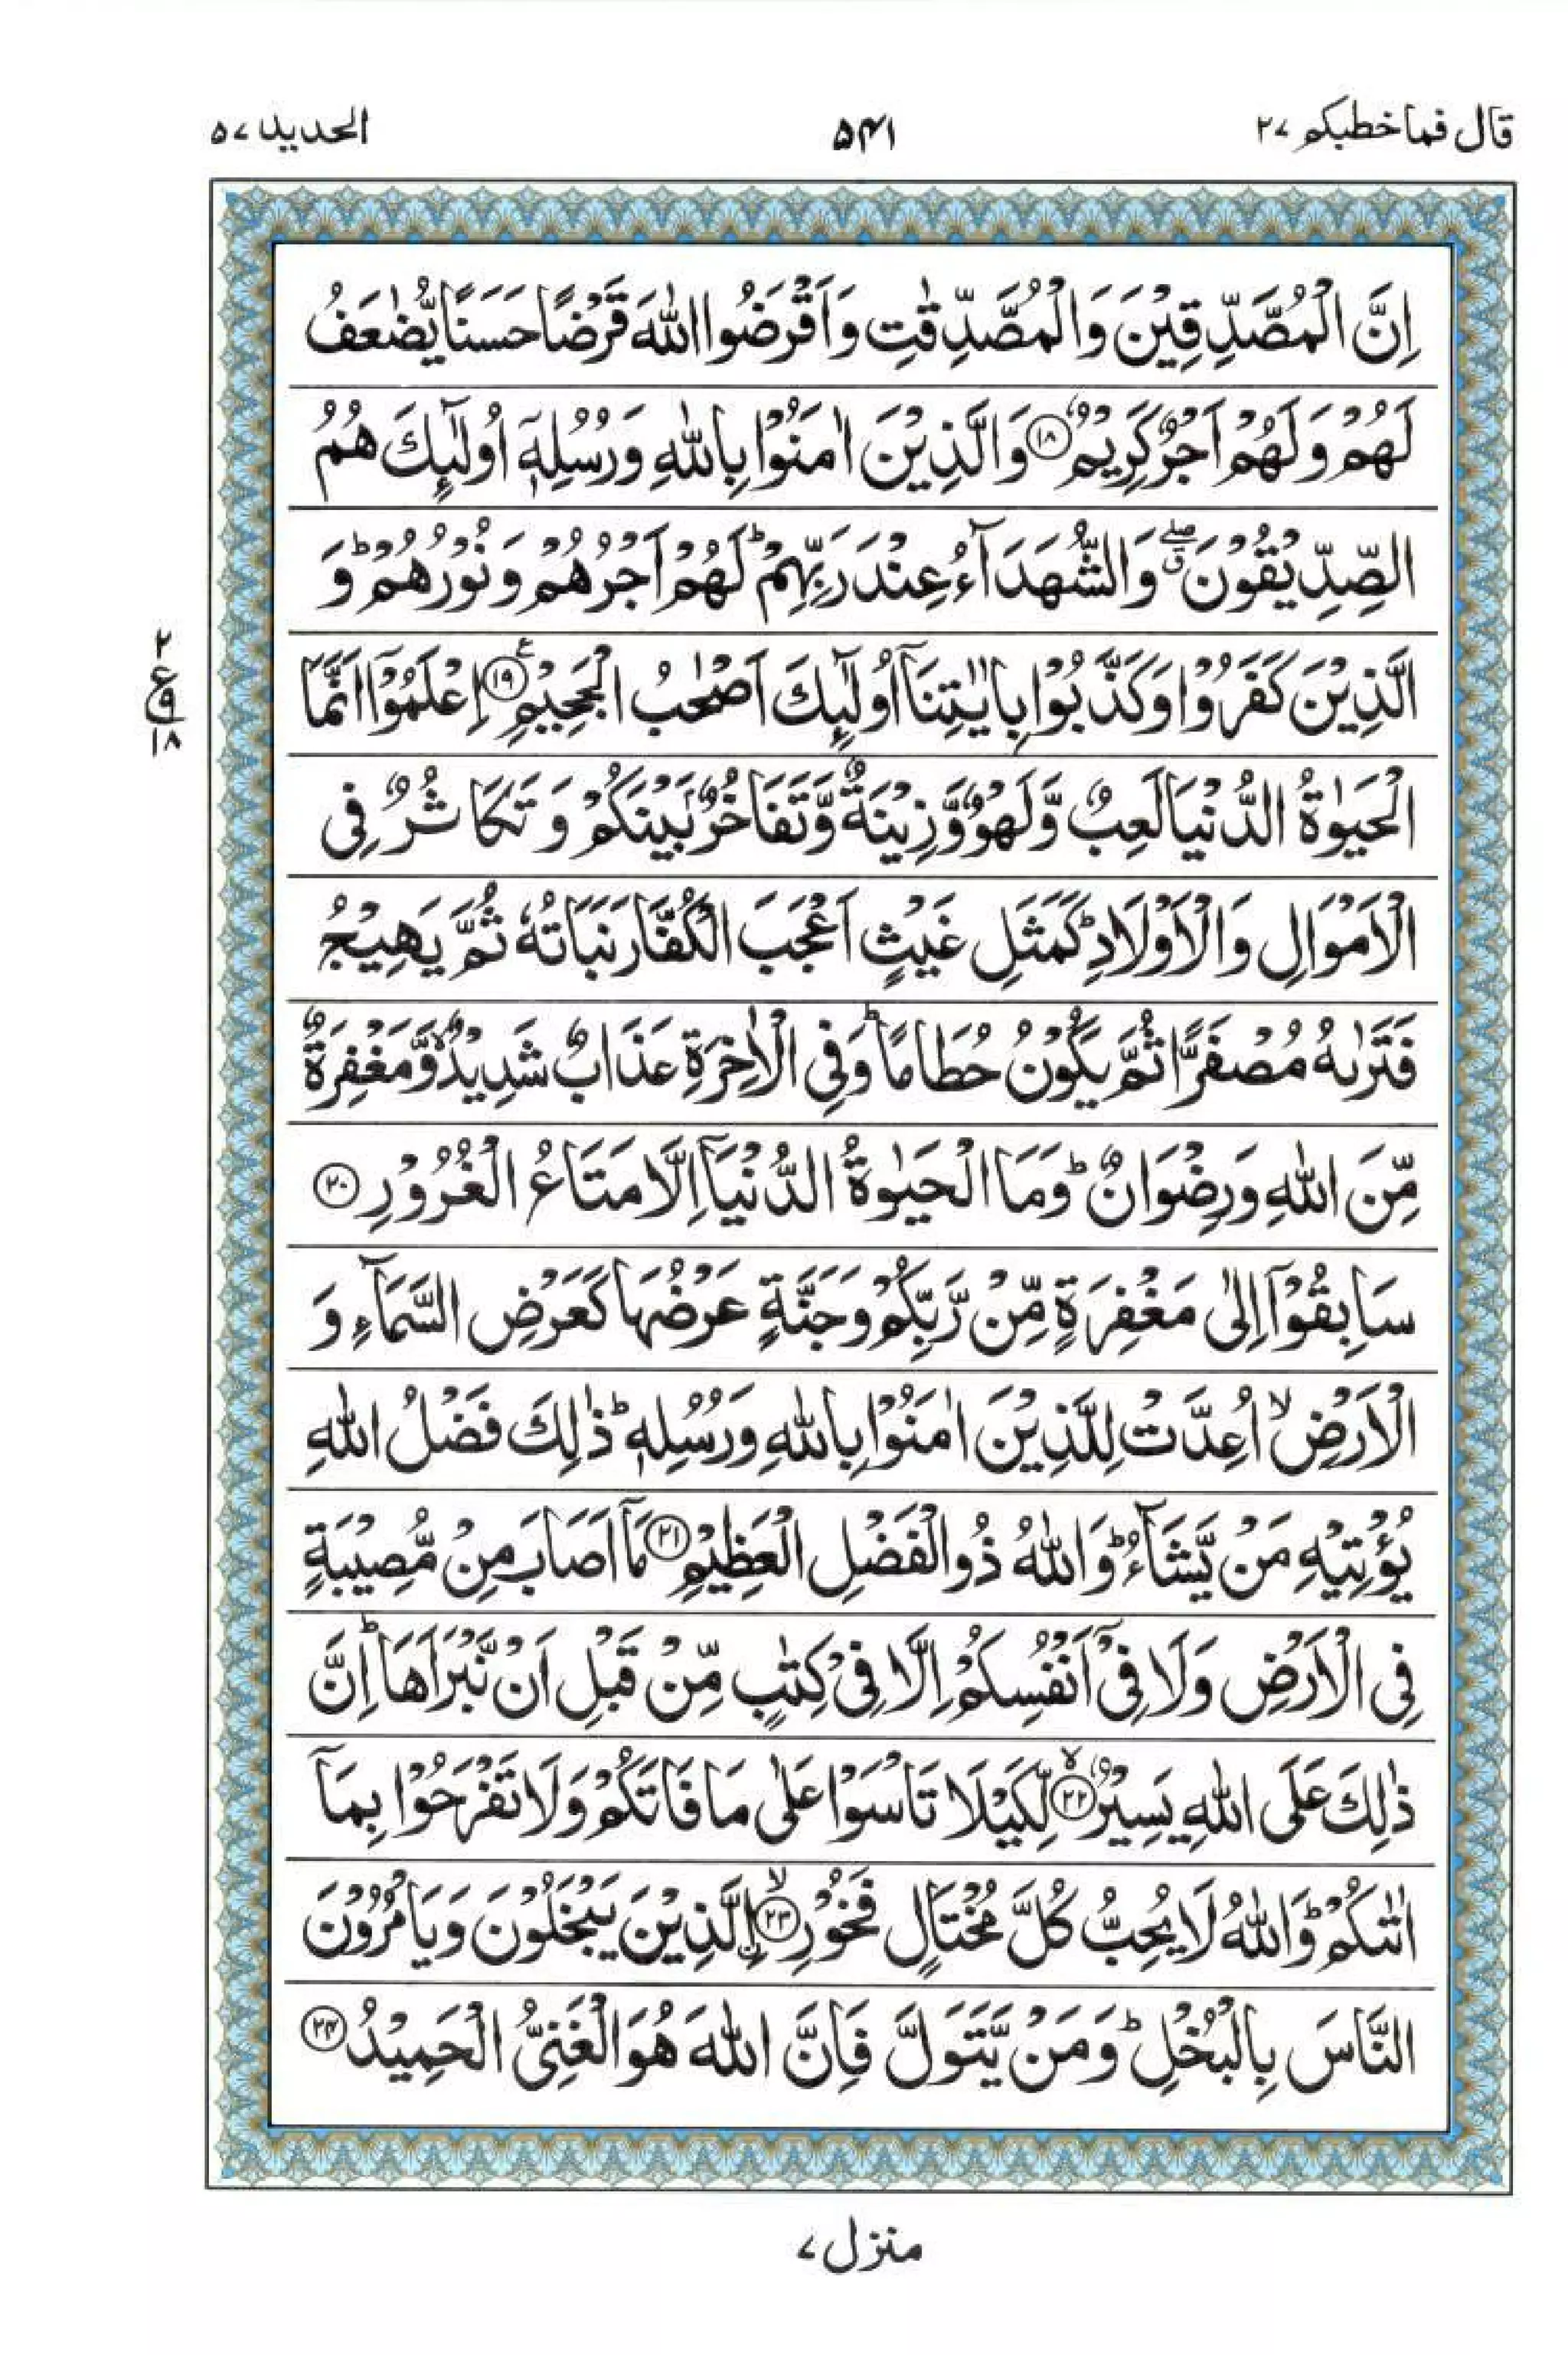 قال فما خطبكم ٢٧ ۵۴۱ الحديد ۵۷
اِنَّ الْمُصَّدِّقِيْنَ وَالْمُصَّدِّقٰتِ وَاَقْرَضُوا اللّٰهَ قَرْضًا حَسَنًا يُّضٰعَفُ
لَهُمْ وَلَهُمْ اَجْرٌ كَرِيْمٌ ﴿۱۸﴾ وَالَّذِيْنَ اٰمَنُوْا بِاللّٰهِ وَرُسُلِهٖۤ اُولٰٓئِكَ هُمُ
الصِّدِّيْقُوْنَ ۖۗ وَالشُّهَدَآءُ عِنْدَ رَبِّهِمْ ؕ لَهُمْ اَجْرُهُمْ وَنُوْرُهُمْ ؕ وَ
الَّذِيْنَ كَفَرُوْا وَكَذَّبُوْا بِاٰيٰتِنَاۤ اُولٰٓئِكَ اَصْحٰبُ الْجَحِيْمِ ﴿۱۹﴾ ع اِعْلَمُوْۤا اَنَّمَا
الْحَيٰوةُ الدُّنْيَا لَعِبٌ وَّلَهْوٌ وَّزِيْنَةٌ وَّتَفَاخُرٌۢ بَيْنَكُمْ وَتَكَاثُرٌ فِى
الْاَمْوَالِ وَالْاَوْلَادِ ؕ كَمَثَلِ غَيْثٍ اَعْجَبَ الْكُفَّارَ نَبَاتُهٗ ثُمَّ يَهِيْجُ
فَتَرٰىهُ مُصْفَرًّا ثُمَّ يَكُوْنُ حُطَامًا ؕ وَفِى الْاٰخِرَةِ عَذَابٌ شَدِيْدٌ ۙ وَّمَغْفِرَةٌ
مِّنَ اللّٰهِ وَرِضْوَانٌ ؕ وَمَا الْحَيٰوةُ الدُّنْيَاۤ اِلَّا مَتَاعُ الْغُرُوْرِ ﴿۲۰﴾
سَابِقُوْۤا اِلٰى مَغْفِرَةٍ مِّنْ رَّبِّكُمْ وَجَنَّةٍ عَرْضُهَا كَعَرْضِ السَّمَآءِ وَ
الْاَرْضِ ۙ اُعِدَّتْ لِلَّذِيْنَ اٰمَنُوْا بِاللّٰهِ وَرُسُلِهٖ ؕ ذٰلِكَ فَضْلُ اللّٰهِ
يُؤْتِيْهِ مَنْ يَّشَآءُ ؕ وَاللّٰهُ ذُو الْفَضْلِ الْعَظِيْمِ ﴿۲۱﴾ مَاۤ اَصَابَ مِنْ مُّصِيْبَةٍ
فِى الْاَرْضِ وَلَا فِىْۤ اَنْفُسِكُمْ اِلَّا فِىْ كِتٰبٍ مِّنْ قَبْلِ اَنْ نَّبْرَاَهَا ؕ اِنَّ
ذٰلِكَ عَلَى اللّٰهِ يَسِيْرٌ ۙ ﴿۲۲﴾ لِّكَيْلَا تَاْسَوْا عَلٰى مَا فَاتَكُمْ وَلَا تَفْرَحُوْا بِمَاۤ
اٰتٰىكُمْ ؕ وَاللّٰهُ لَا يُحِبُّ كُلَّ مُخْتَالٍ فَخُوْرٍ ۙ ﴿۲۳﴾ ۨالَّذِيْنَ يَبْخَلُوْنَ وَيَاْمُرُوْنَ
النَّاسَ بِالْبُخْلِ ؕ وَمَنْ يَّتَوَلَّ فَاِنَّ اللّٰهَ هُوَ الْغَنِىُّ الْحَمِيْدُ ﴿۲۴﴾
۲
ع
۹
۱۸
منزل ۷